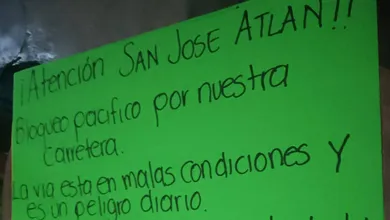 ¡Atención SAN JOSE ATLAN!!
Bloqueo pacifico por nuestra
carretera.
La via esta en malas condiciones y
es un peligro diario.